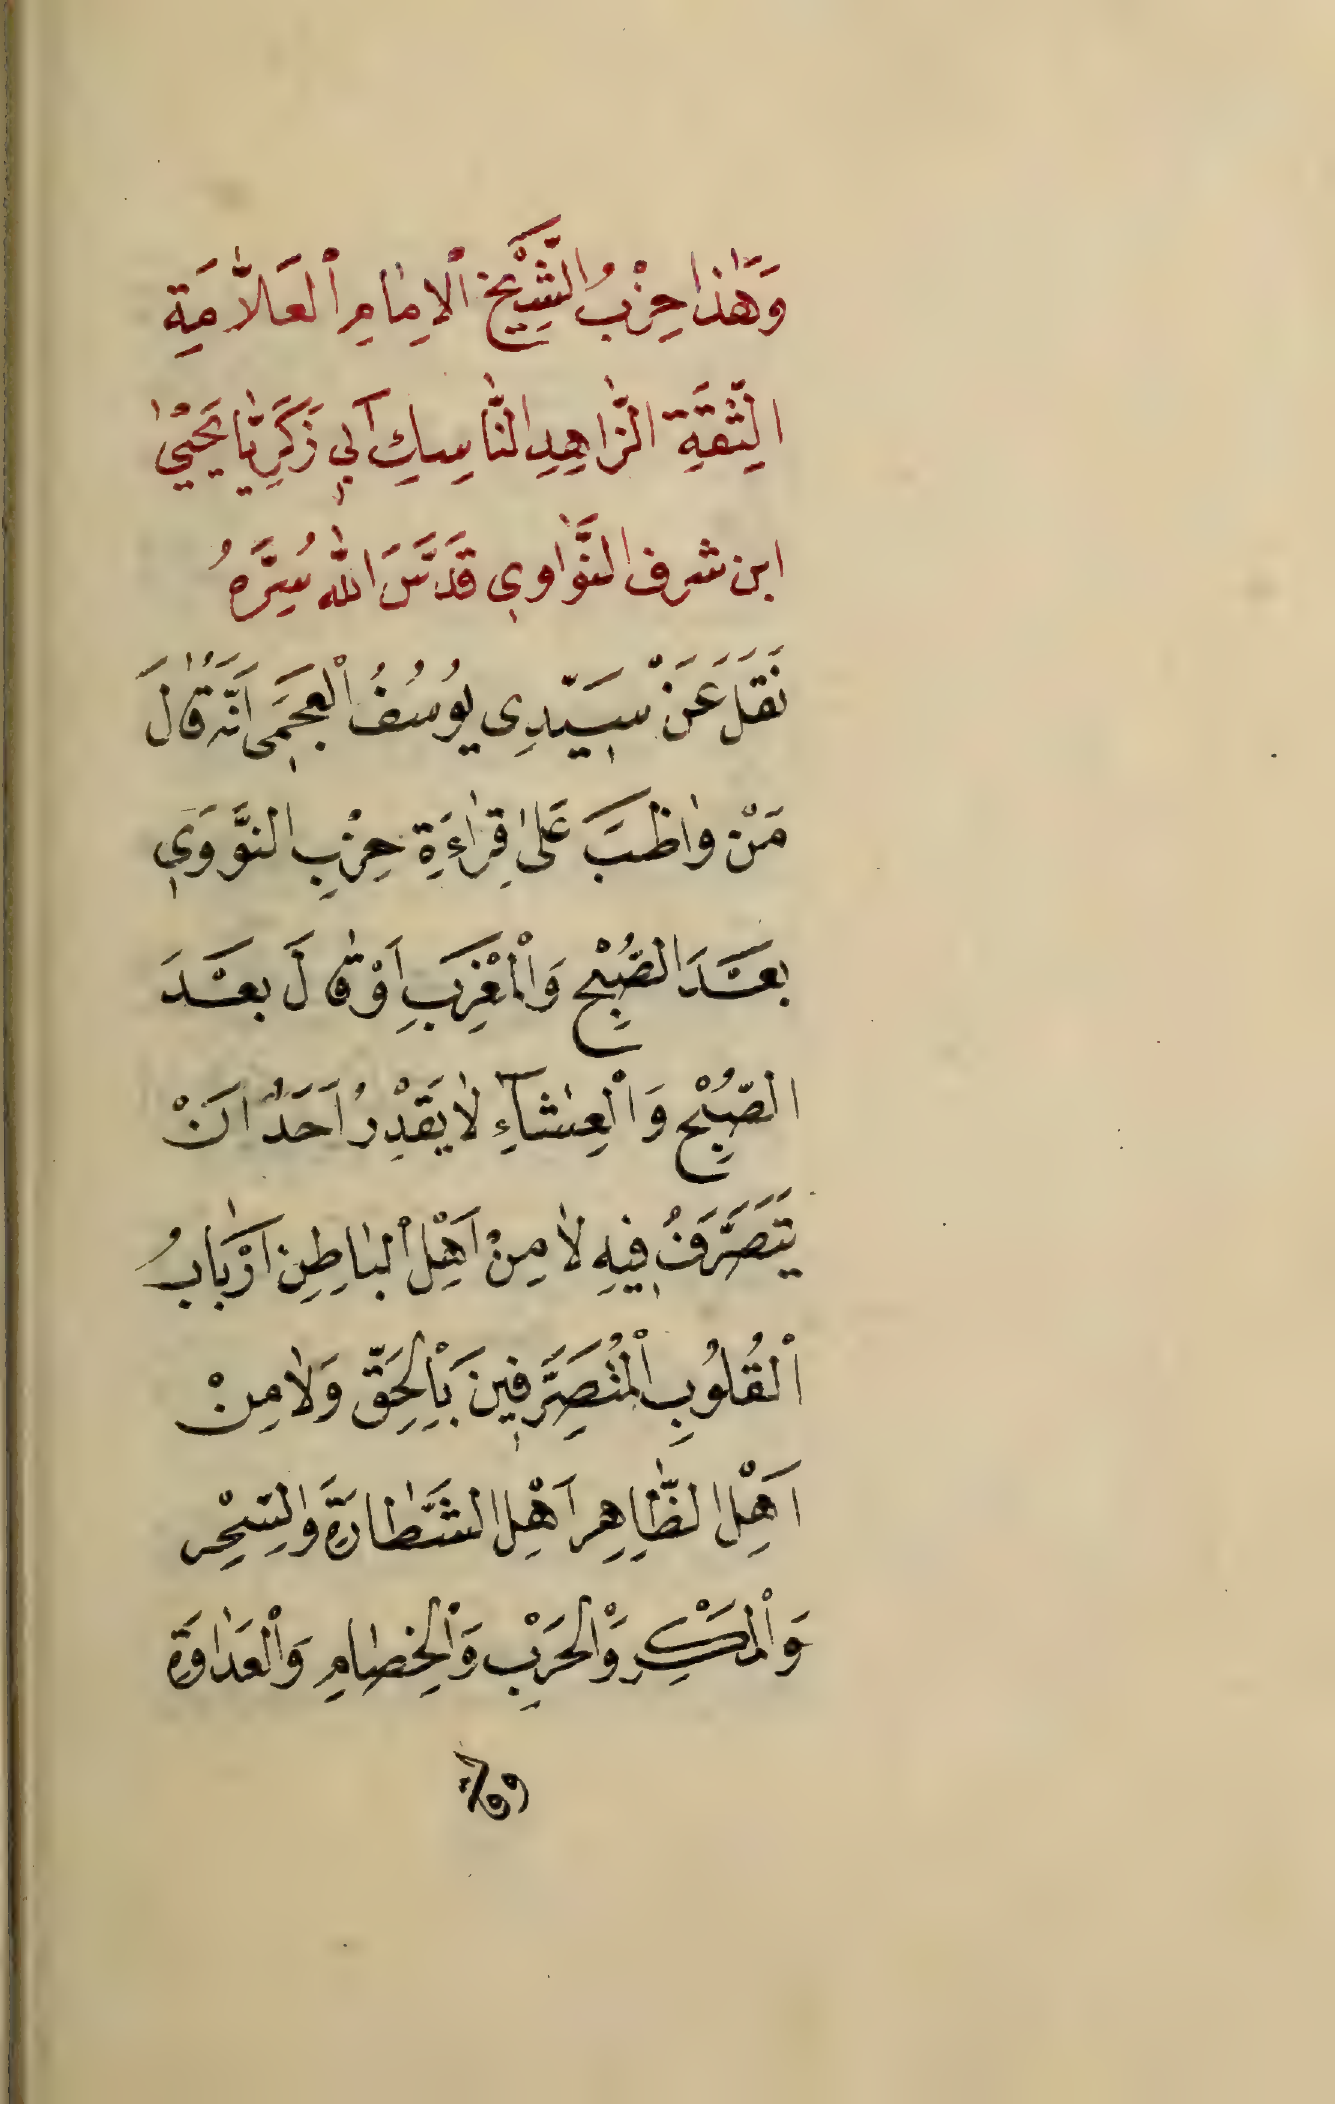 وَهٰذَا حِزْبُ الشَّيْخِ الْاِمٰامِ الْعَلَّامَةِ
الثِّقَةِ الزّٰاهِدِ النّٰاسِكِ اَبِي زَكَرِيّٰا يَحْيٰى
ابن شرف النَّوٰاوي قَدَّسَ اللّٰه سُِرَّهُ
نَقَلَ عَنْ سَيّدِى يُوسُفُ الْعَجَمِى اَنَّهُ قٰالَ
مَنْ وٰاظَبَ عَلىٰ قِرٰاءَةِ حِزْبِ النَّوَوَي
بعْدَ الصُّبْحِ وَالْمَغْرِبِ اَوْ قٰالَ بعْدَ
الصُّبْحِ وَالْعِشٰاءِ لٰا يَقْدِرُ اَحَدٌ اَنْ
يَتَصَرَّفُ فيهِ لٰا مِنْ اَهْلِ الْبٰاطِنِ اَرْبٰابُ
الْقُلُوبِ الْمُتَصَرِّفِينَ بِالْحَقِّ وَلٰا مِنْ
اَهْلِ الظّٰاهِرِ اَهْلِ الشَّطٰارَةِ وَالسِّحْرِ
وَالْمَكْرِ وَالْحَرْبِ وَالْخِصٰامِ وَالْعَدٰاوَةِ